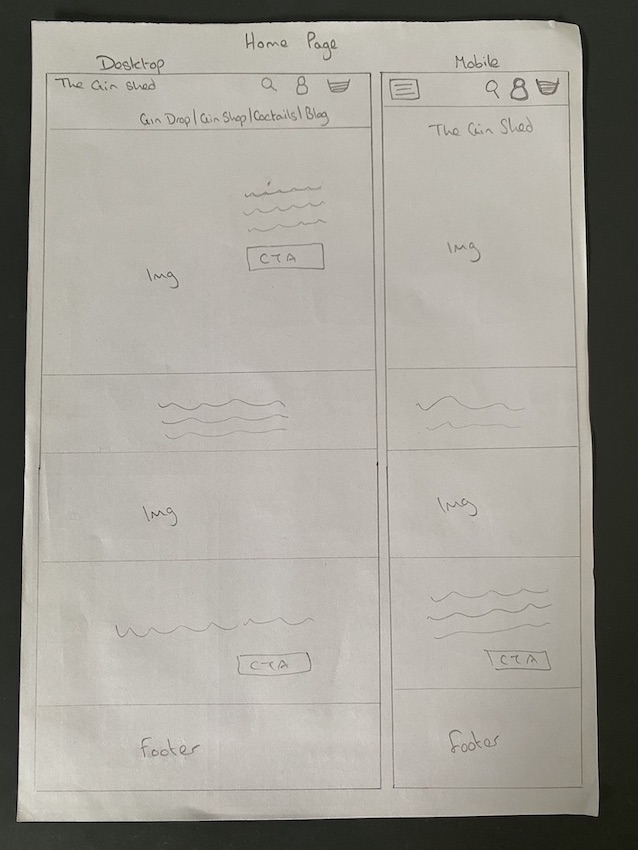 Home Page
Desktop
The Gin Shed
Gin Drop | Gin Shop | Cocktails | Blog
CTA
Img
Img
CTA
Footer
Mobile
The Gin Shed
Img
Img
CTA
Footer